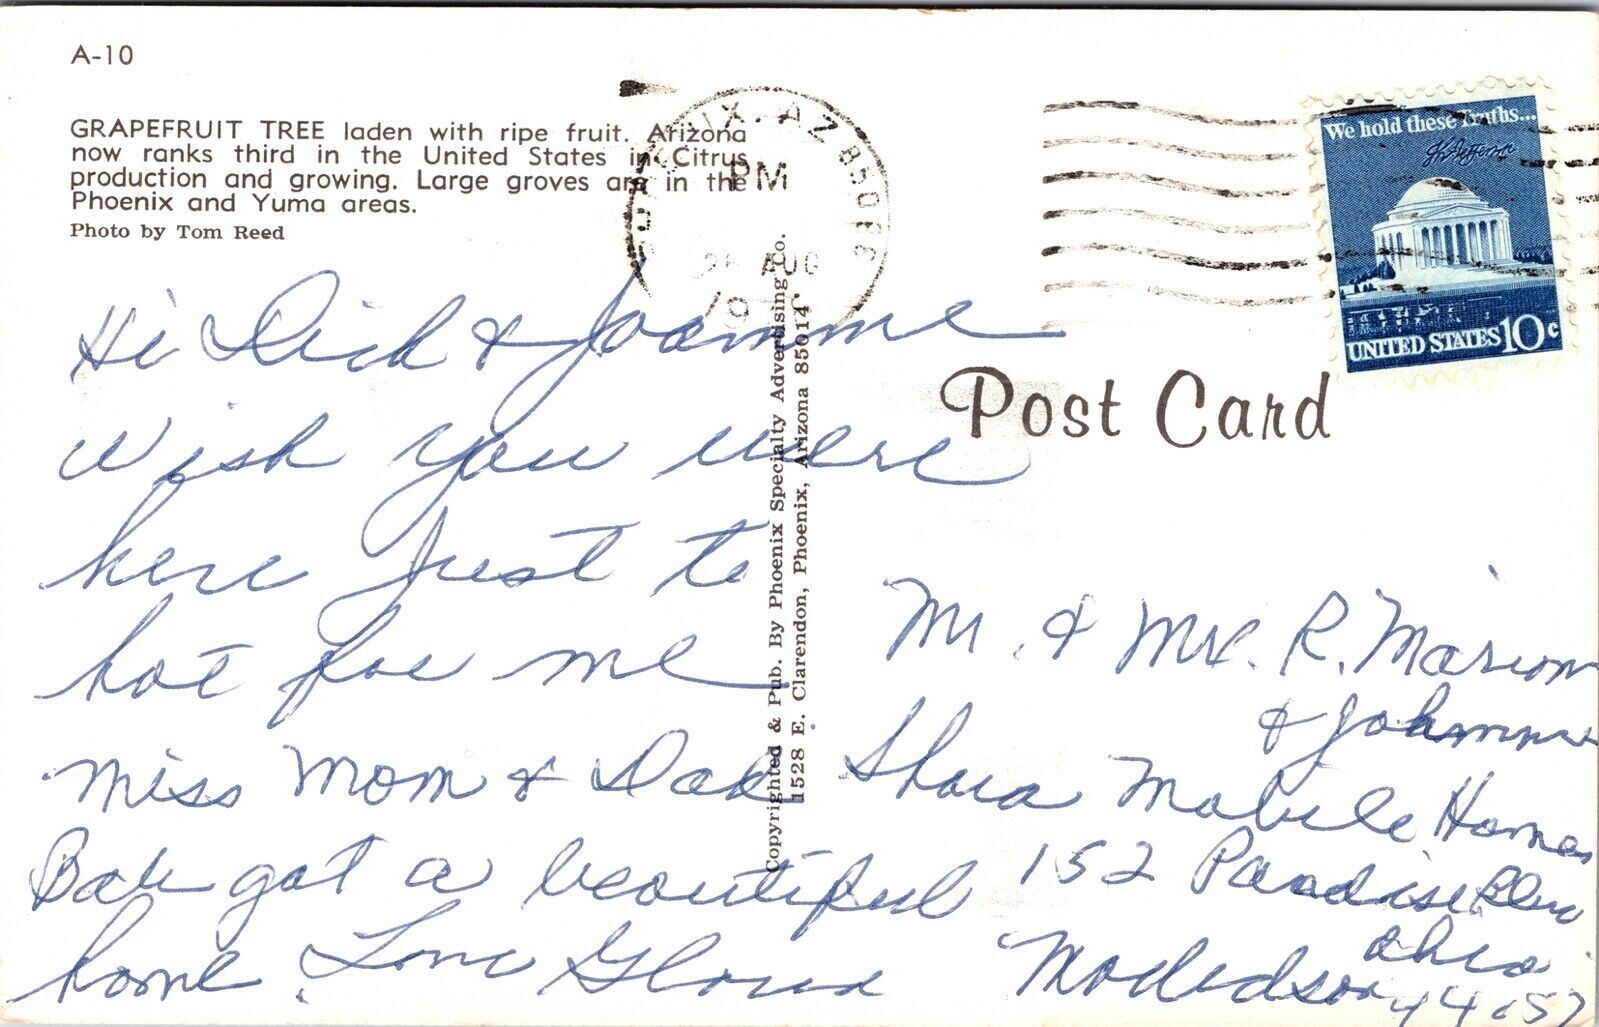 A-10
GRAPEFRUIT TREE laden with ripe fruit. Arizona
now ranks third in the United States in Citrus
production and growing. Large groves are in the
Phoenix and Yuma areas.
Photo by Tom Reed
Hi Dick & Joanne
Wish you were
here Just to
hot for me
Miss Mom & Dad
Bob got a beautiful
home. Love Gloria
Copyrighted & Pub. By Phoenix Specialty Advertising Co.
1528 E. Clarendon, Phoenix, Arizona 85014
AZ 850
PM
AUG
19
We hold these Truths...
Th Jefferson
UNITED STATES 10c
Post Card
Mr. & Mrs. R. Marion
& Johnnie
Mobile Homes
152 Paradise Blvd
Ohio
44057